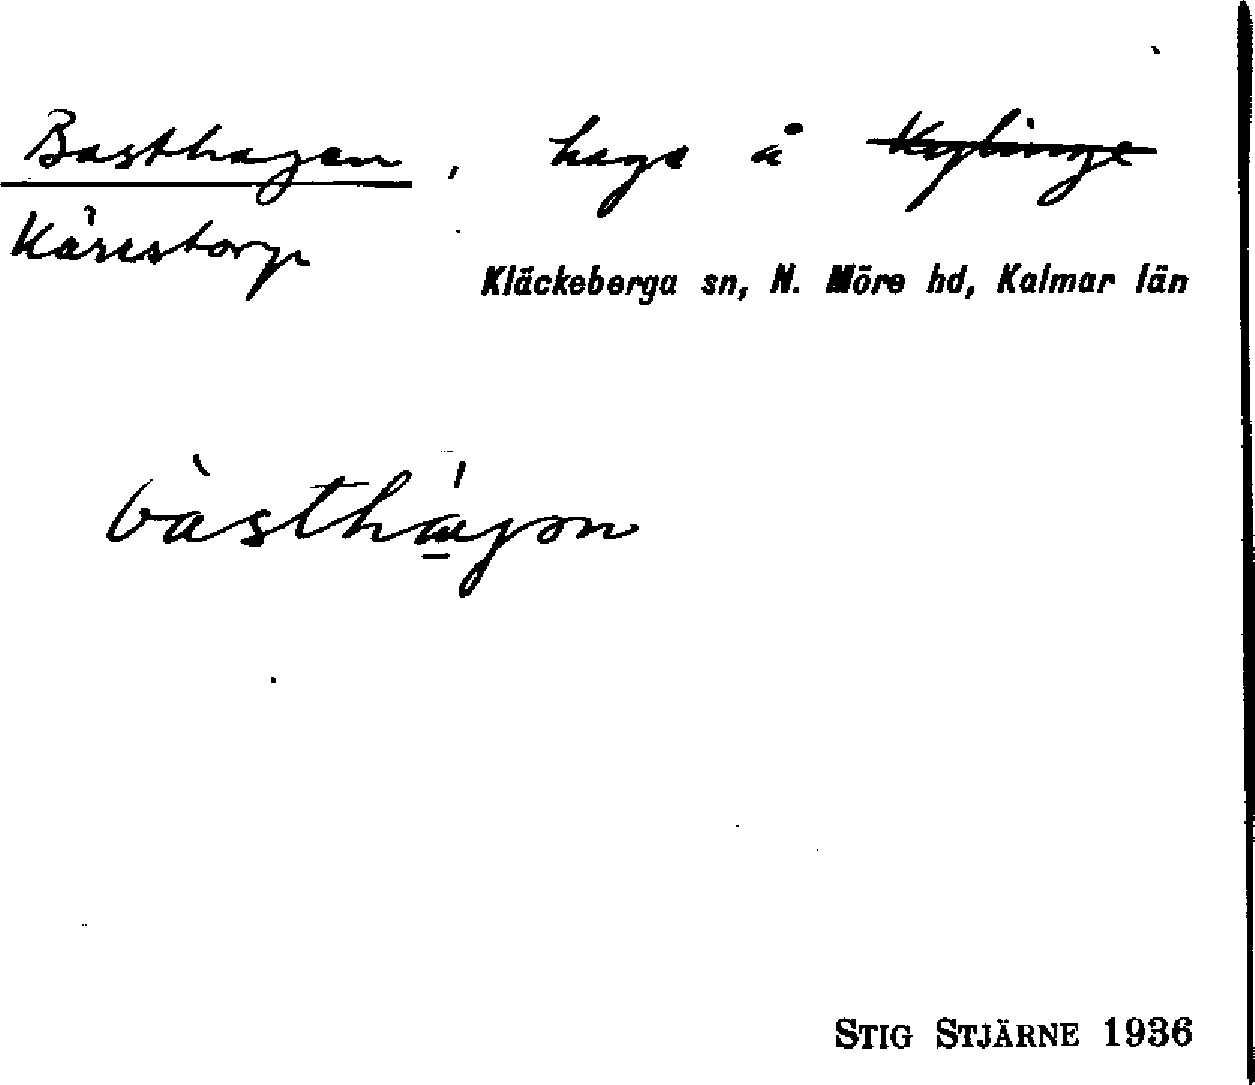 Basthagen, hage å Kylinge
Kärestorp
Kläckeberga sn, N. Möre hd, Kalmar län
bàsthágən
STIG STJÄRNE 1936